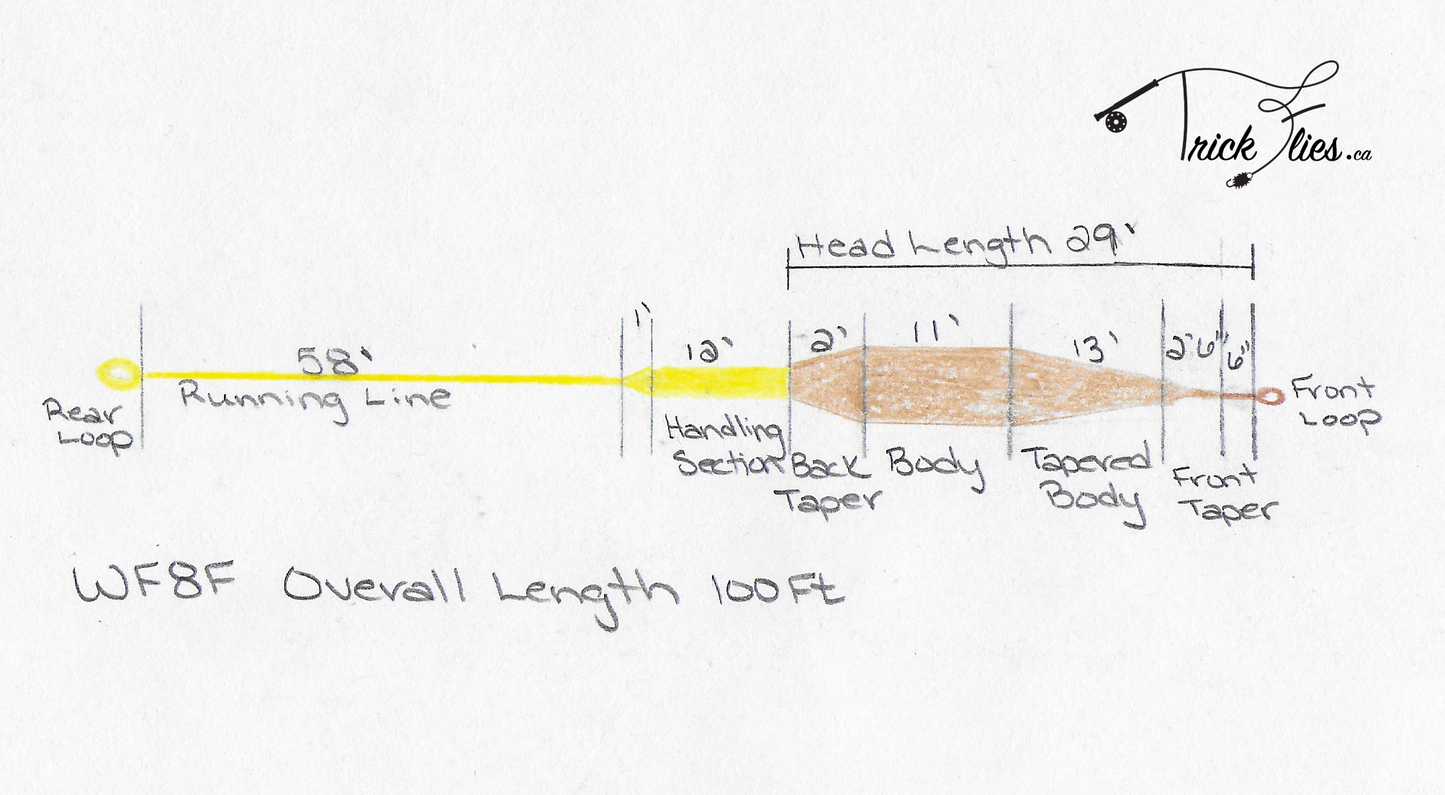 Trick Flies.ca
Head Length 29'
58'
1'
12'
2'
11'
13'
2'6"
6"
Rear
Loop
Running Line
Handling
Section
Back
Taper
Body
Tapered
Body
Front
Taper
Front
Loop
WF8F Overall Length 100Ft